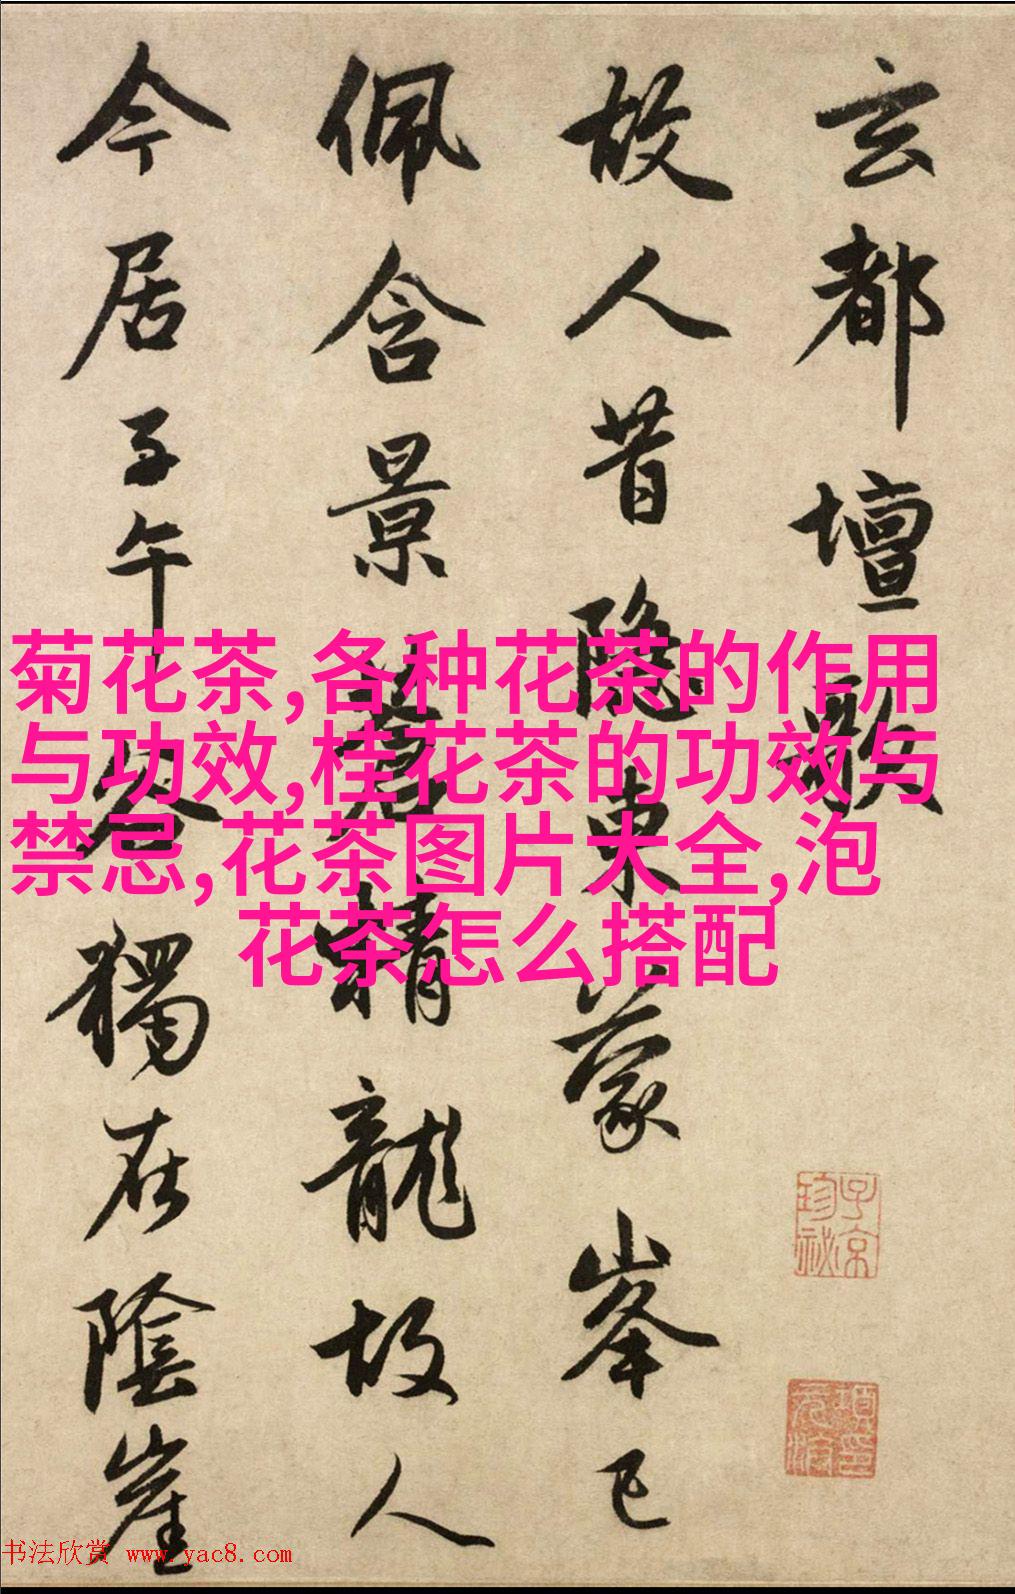 玄都壇歌
故人昔隐東蒙峯已
佩含景蒼精龍故人
今居子午谷獨在陰崖
菊花茶,各种花茶的作用
与功效,桂花茶的功效与
禁忌,花茶图片大全,泡
花茶怎么搭配
子京
珍祕
书法欣赏 www.yac8.com